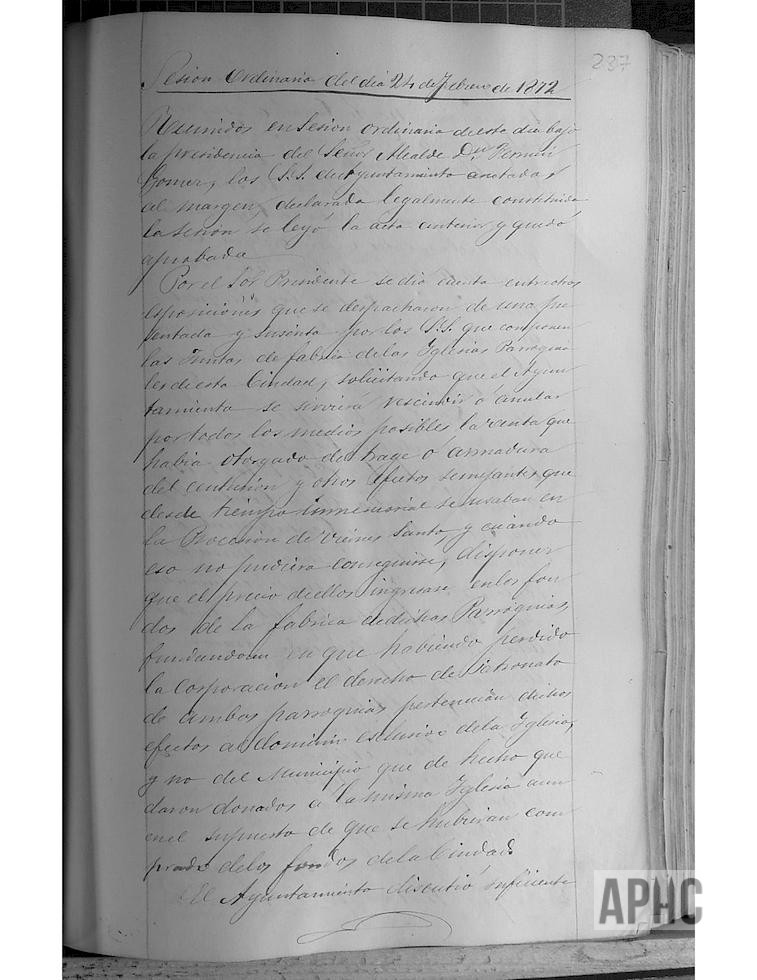 237
Sesion Ordinaria del dia 24 de Febrero de 1872
Reunidos en Sesion ordinaria de este dia bajo
la presidencia del Señor Alcalde Dn Fermin
Gomez, los S.S. de Ayuntamiento anotados
al margen, declarada legalmente constituida
la sesion se leyó la acta anterior y quedó
aprobada
Por el Sor Presidente se dió cuenta entre otras
esposiciones que se despacharon de una pre
sentada y suscrita por los S.S. que componen
las Juntas de fábrica de las Iglesias Parroquia
les de esta Ciudad, solicitando que el Ayun
tamiento se sirviera rescindir o anular
por todos los medios posibles la venta que
habia otorgado de trage ó armadura
del centurion y otros efectos semejantes que
desde tiempo inmemorial se usaban en
la Procesion de Viernes Santo, y cuando
eso no pudiera conseguirse, disponer
que el precio de ellos ingresase en los fon
dos de la fabrica de dichas Parroquias,
fundandose en que habiendo perdido
la Corporacion el derecho de Patronato
de ambas parroquias pertenecian dichos
efectos al dominio esclusivo de la Iglesia,
y no del Municipio que de hecho que
daron donados a la misma Iglesia aun
en el supuesto de que se hubieran com
prado de los fondos de la Ciudad.
El Ayuntamiento discutió suficiente
APHC